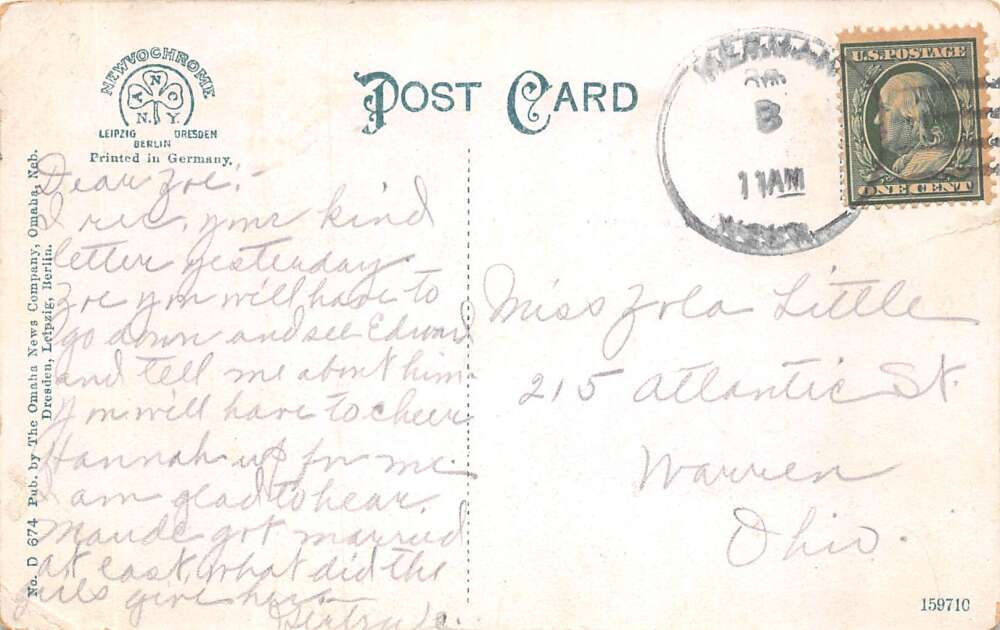 NEWVOCHROME
A N C
N. Y
LEIPZIG DRESDEN
BERLIN
Printed in Germany.
POST CARD
U.S.POSTAGE
ONE CENT
8
11AM
No. D 674 Pub. by The Omaha News Company, Omaha, Neb.
Dresden, Leipzig, Berlin.
Dear Zoe:-
I rec. your kind
letter yesterday.
Zoe you will have to
go down and see Edward
and tell me about him
You will have to cheer
Hannah up for me.
I am glad to hear.
Maude got married
at last, what did the
girls give her.
Gertrude.
Miss Zola Little
215 Atlantic St.
Warren
Ohio.
159710